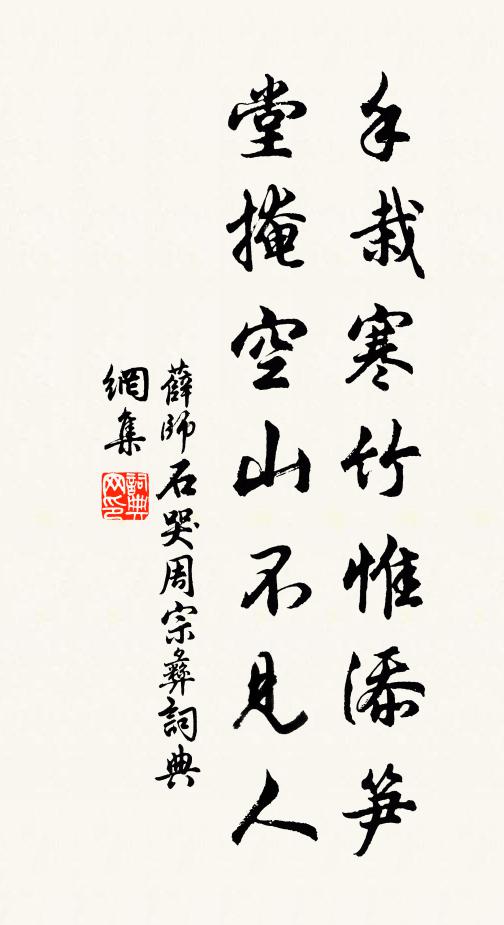 手栽寒竹惟添笋
堂掩空山不見人
薛師石哭周宗彝詞典
網集
詞典
网印